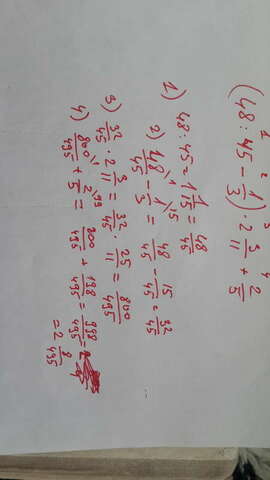 1 2 3 4
(48 : 45 - 1/3) · 2 3/11 + 2/5
1) 48 : 45 = 1 1/15 = 48/45
2) 48/45 - 1/3 = 48/45 - 15/45 = 32/45
3) 32/45 · 2 3/11 = 32/45 · 25/11 = 800/495
4) 800/495 + 2/5 = 800/495 + 198/495 = 998/495 =
= 2 8/495